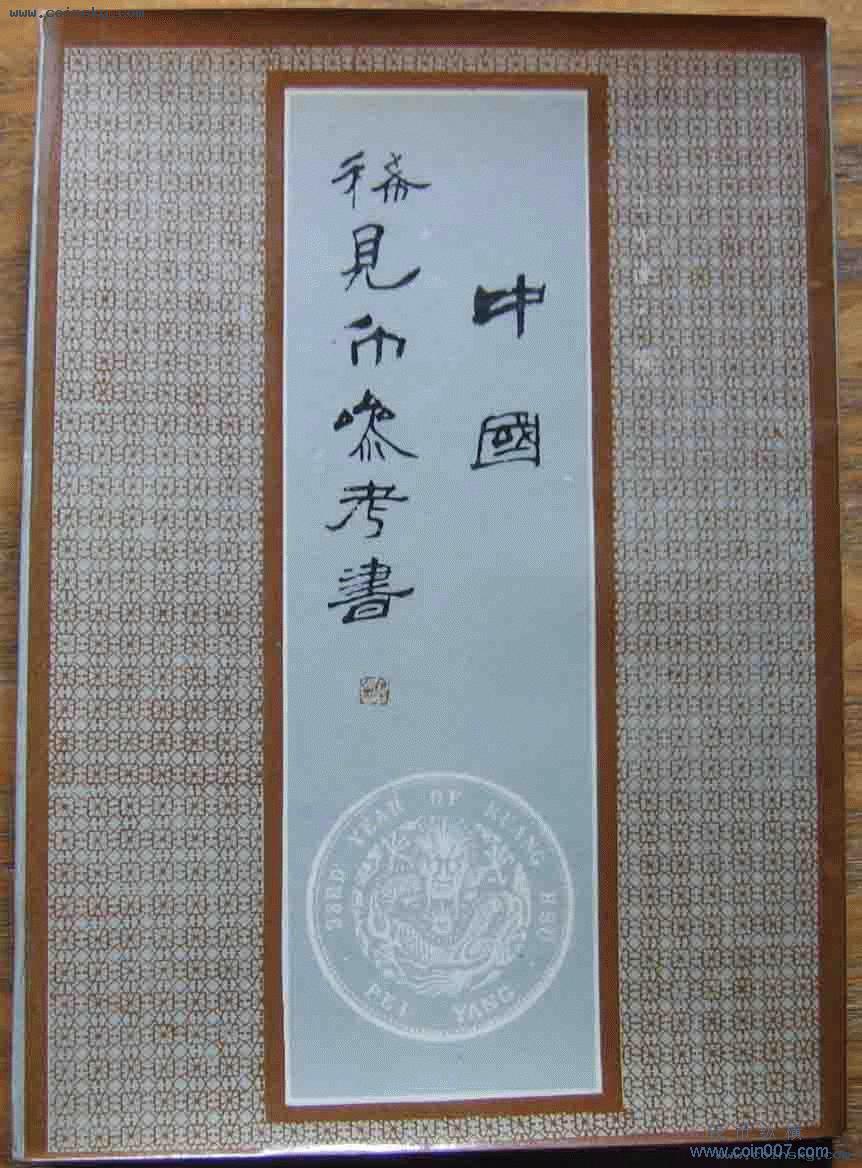 www.coinsky.com
中國
稀見币参考書
33RD YEAR OF KUANG HSU
PEI YANG
www.coin007.com